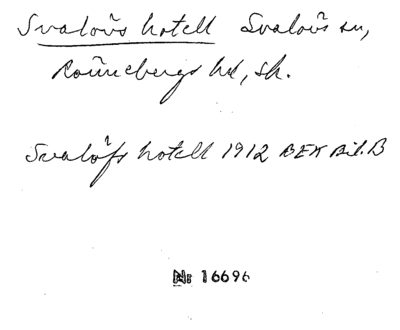 Svalövs hotell Svalövs sn,
Rönnebergs hd, sk.
Svalöfs hotell 1912 BEK Bil. B
Nr 16696